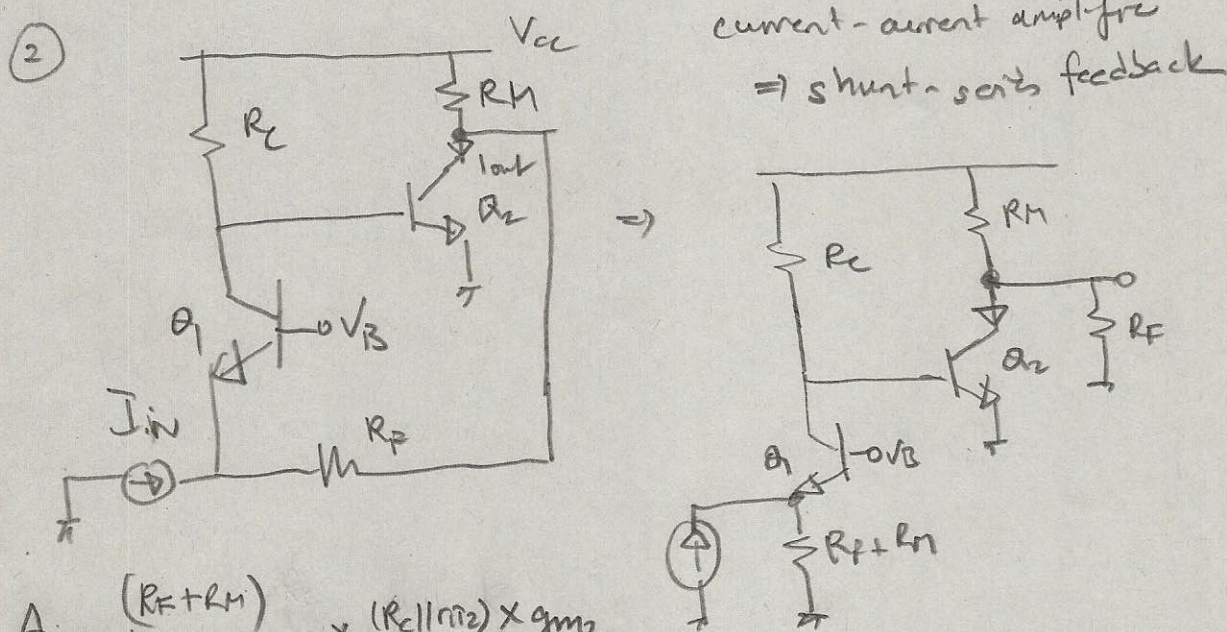 ②
current-current amplifire
=> shunt-series feedback
Vcc
RM
RC
Iout
Q2
Q1
VB
Iin
RF
=>
RM
RC
RF
Q2
Q1
VB
RF+RM
A
(RF+RM)
x (RC||rπ2) x gm2